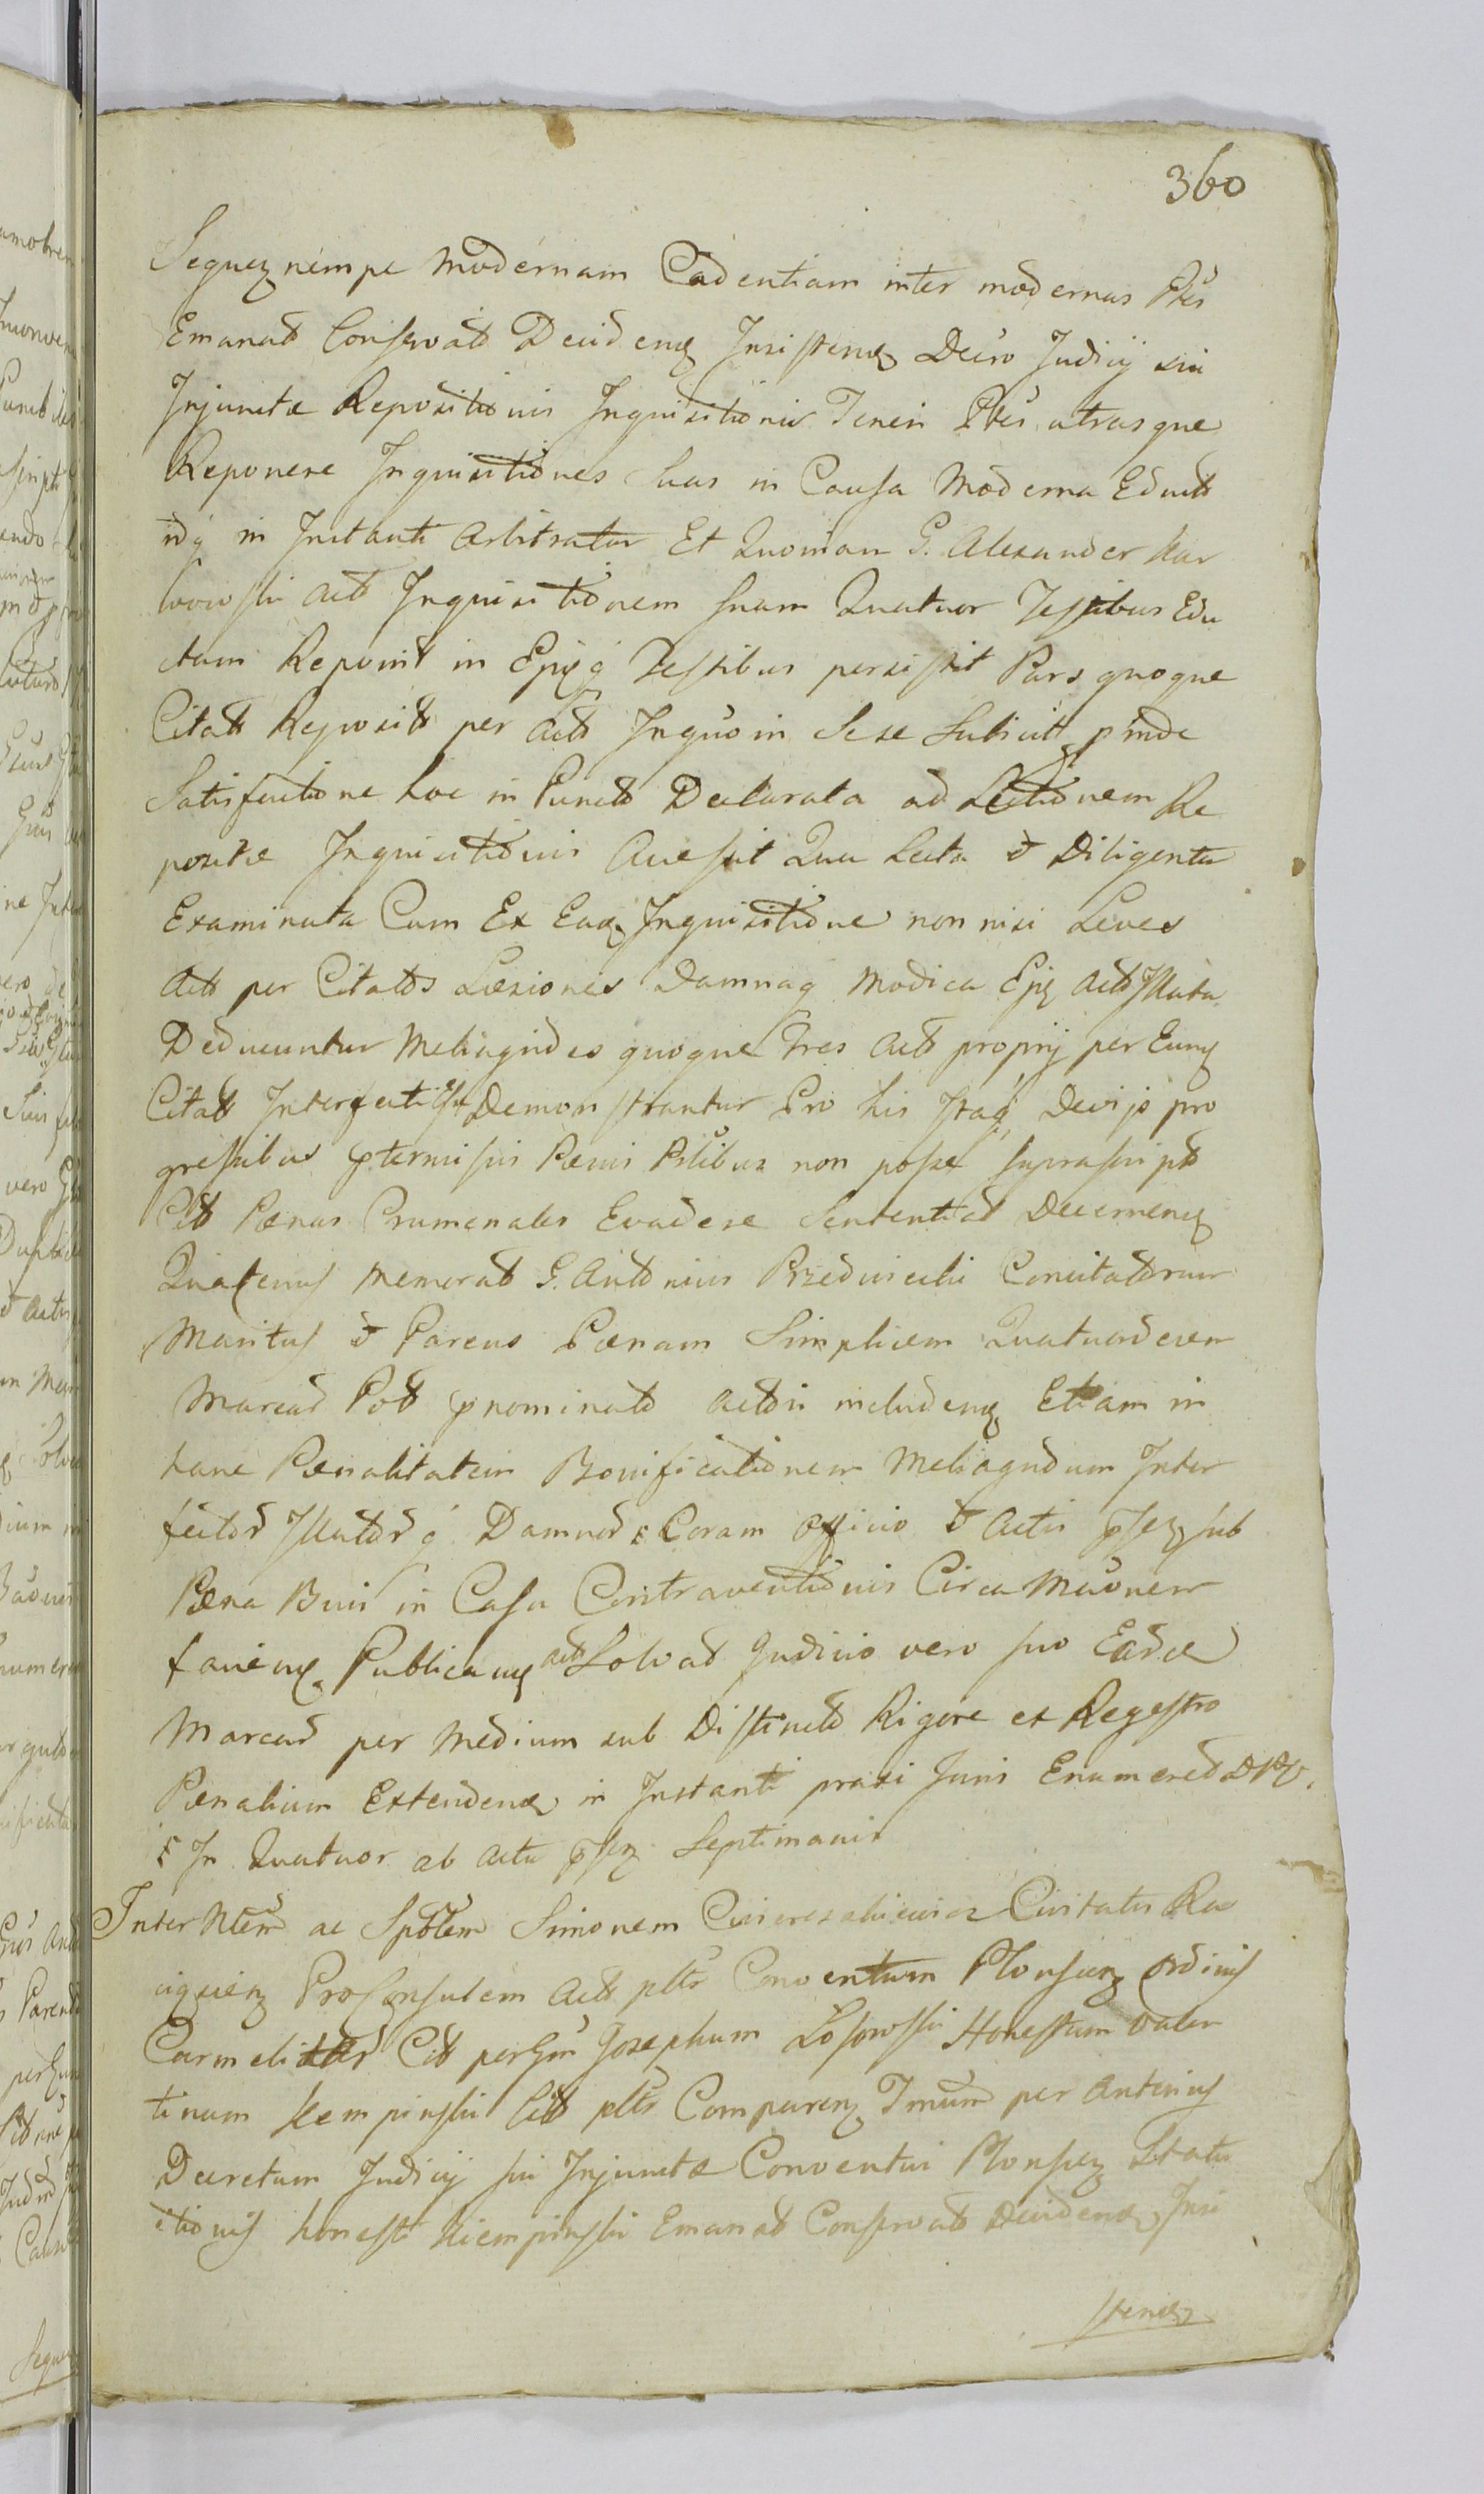 360
Sequen nempe modernam Cadentiam inter modernas Ptes
Emanat Conservat Deciden Insisten Decro Judicij sui
Injunctæ Repositionis Inquisitionis Teneri Ptes utrasque
Reponere Inquisitiones Suas in Causa Moderna Educt
idq in Instanti Arbitratur Et Quoniam G. Alexander Kar
wowski Act Inquisitionem suam Quatuor Testibus Edu
ctam Reponit in Ejq Testibus persistit Pars quoque
Citat Reposit per Act Inquoni Sese Subicit pinde
Satisfactione hoc in Puncto Declarata ad Lectionem Re
positæ Inquisitionis Accessit Qua Lecta & Diligenter
Examinata Cum Ex Ead Inquisitione non nisi Leves
Act per Citatos Læsiones Damnaq Modica Ejq Act Illata
Deducuntur Meliagrides quoque Tres Act proprij per Eunq
Citat Interfecti Demonstrantur Pro his Itaq Devijs pro
gressibus prmissis Pænis Prlibus non posse suprascript
Citt Pænas Crumenales Evadere Sententiat Decernen
Quatenus Memorat G. Antonius Przedwiecki Concitatorum
Maritus & Parens Pænam Simplicem Quatuordecem
Marcas Pot prnominato Actori includen Etiam in
hanc Pænalitatem Bonificationem Meliagridum Inter
fector Illator q Damnor Coram Officio & Actis prsen sub
Pæna Bnis in Casu Contraventionis Circa Mæonem
facien Publican act Solvat Judicio vero suo Easd
Marcas per Medium sub Distincto Rigore ex Regestro
Pænalium Extenden in Instanti praxi Juris Enumeret DPV.
In Quatuor ab actu prsen Septimanis
Inter Ntem ac Spblem Simonem Civitatis Ra
ciązien ProConsulem Act pltr Conventum Płonscen Ordinis
Carmelitar Citt per Gm Josephum Łosowski Honestum Valen
tinum Kempinski Citt pltr Comparen Tmum per Anterius
Decretum Judicij sui Injunctæ Conventui Płonscen Statu
itionis honesti Kiempinski Emanat Conservat Deciden Insi
stenden